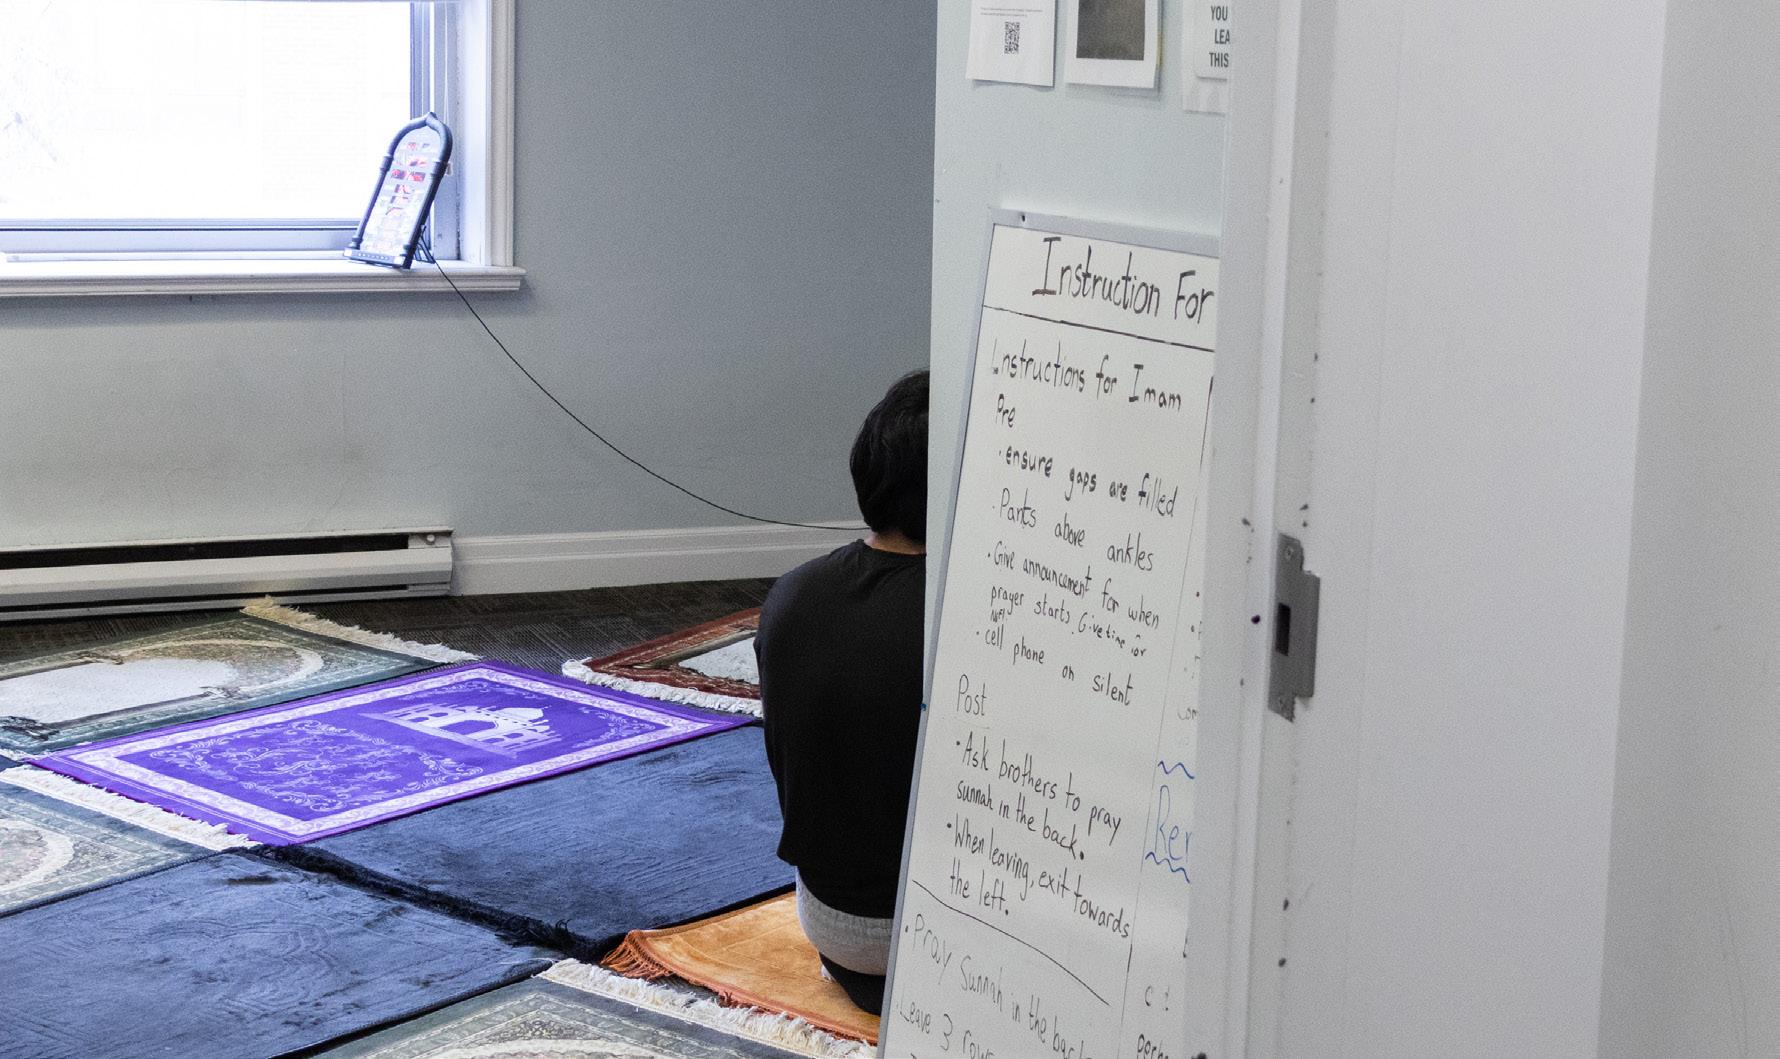 YOU
LEA
THIS
Instruction For
Instructions for Imam
Pre
· ensure gaps are filled
· Pants above ankles
· Give announcement for when
prayer starts. Give time for
· cell phone on silent
Post
· Ask brothers to pray
sunnah in the back.
· When leaving, exit towards
the left.
· Pray Sunnah in the back
· Leave 3 rows